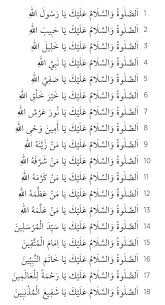 1 اَلصَّلٰوةُ وَالسَّلَامُ عَلَيْكَ يَا رَسُوْلَ اللّٰهِ
2 اَلصَّلٰوةُ وَالسَّلَامُ عَلَيْكَ يَا حَبِيْبَ اللّٰهِ
3 اَلصَّلٰوةُ وَالسَّلَامُ عَلَيْكَ يَا خَلِيْلَ اللّٰهِ
4 اَلصَّلٰوةُ وَالسَّلَامُ عَلَيْكَ يَا نَبِيَّ اللّٰهِ
5 اَلصَّلٰوةُ وَالسَّلَامُ عَلَيْكَ يَا صَفِيَّ اللّٰهِ
6 اَلصَّلٰوةُ وَالسَّلَامُ عَلَيْكَ يَا خَيْرَ خَلْقِ اللّٰهِ
7 اَلصَّلٰوةُ وَالسَّلَامُ عَلَيْكَ يَا نُوْرَ عَرْشِ اللّٰهِ
8 اَلصَّلٰوةُ وَالسَّلَامُ عَلَيْكَ يَا اَمِيْنَ وَحْيِ اللّٰهِ
9 اَلصَّلٰوةُ وَالسَّلَامُ عَلَيْكَ يَا مَنْ زَيَّنَهُ اللّٰهُ
10 اَلصَّلٰوةُ وَالسَّلَامُ عَلَيْكَ يَا مَنْ شَرَّفَهُ اللّٰهُ
11 اَلصَّلٰوةُ وَالسَّلَامُ عَلَيْكَ يَا مَنْ كَرَّمَهُ اللّٰهُ
12 اَلصَّلٰوةُ وَالسَّلَامُ عَلَيْكَ يَا مَنْ عَظَّمَهُ اللّٰهُ
13 اَلصَّلٰوةُ وَالسَّلَامُ عَلَيْكَ يَا مَنْ عَلَّمَهُ اللّٰهُ
14 اَلصَّلٰوةُ وَالسَّلَامُ عَلَيْكَ يَا سَيِّدَ الْمُرْسَلِيْنَ
15 اَلصَّلٰوةُ وَالسَّلَامُ عَلَيْكَ يَا اِمَامَ الْمُتَّقِيْنَ
16 اَلصَّلٰوةُ وَالسَّلَامُ عَلَيْكَ يَا خَاتَمَ النَّبِيِّيْنَ
17 اَلصَّلٰوةُ وَالسَّلَامُ عَلَيْكَ يَا رَحْمَةً لِّلْعَالَمِيْنَ
18 اَلصَّلٰوةُ وَالسَّلَامُ عَلَيْكَ يَا شَفِيْعَ الْمُذْنِبِيْنَ